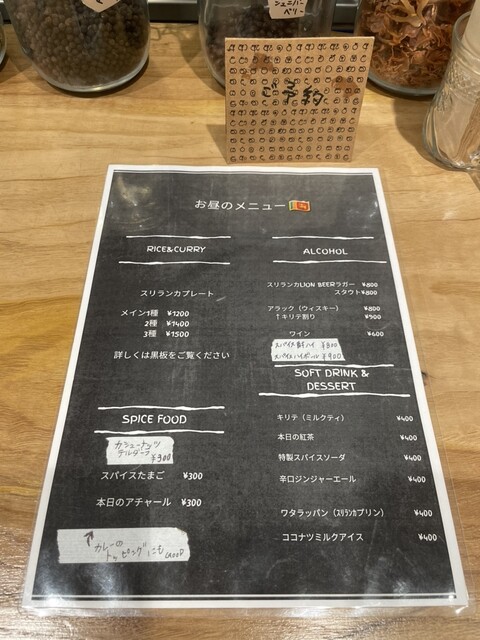 ジュニパー
ベリー
ご予約
お昼のメニュー
RICE&CURRY
スリランカプレート
メイン1種 ¥1200
2種 ¥1400
3種 ¥1500
詳しくは黒板をご覧ください
SPICE FOOD
カシューナッツ
テルダーラ ¥300
スパイスたまご ¥300
本日のアチャール ¥300
↑カレーの
トッピングにもGOOD
ALCOHOL
スリランカLION BEERラガー ¥800
スタウト¥800
アラック（ウィスキー） ¥800
↑キリテ割り ¥900
ワイン ¥600
スパイス酎ハイ ¥800
スパイスハイボール ¥900
SOFT DRINK &
DESSERT
キリテ（ミルクティ） ¥400
本日の紅茶 ¥400
特製スパイスソーダ ¥400
辛口ジンジャーエール ¥400
ワタラッパン（スリランカプリン） ¥400
ココナツミルクアイス ¥400